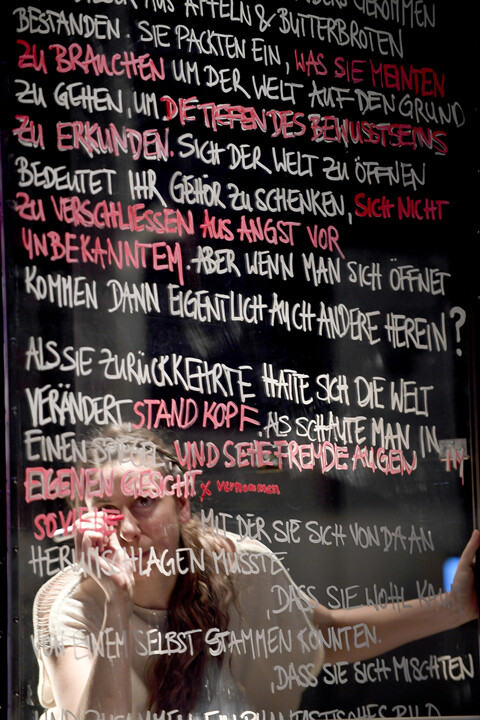 ÄPFELN & BUTTERBROTEN
BESTANDEN. SIE PACKTEN EIN, WAS SIE MEINTEN
ZU BRAUCHEN UM DER WELT AUF DEN GRUND
ZU GEHEN, UM DIE TIEFEN DES BEWUSSTSEINS
ZU ERKUNDEN. SICH DER WELT ZU ÖFFNEN
BEDEUTET IHR GEHÖR ZU SCHENKEN, SICH NICHT
ZU VERSCHLIESSEN AUS ANGST VOR
UNBEKANNTEM. ABER WENN MAN SICH ÖFFNET
KOMMEN DANN EIGENTLICH AUCH ANDERE HEREIN?
ALS SIE ZURÜCKKEHRTE HATTE SICH DIE WELT
VERÄNDERT. STAND KOPF ALS SCHAUTE MAN IN
EINEN SPIEGEL UND SEHE FREMDE AUGEN IM
EIGENEN GESICHT x vernommen
SOVIELE MIT DER SIE SICH VON DA AN
HERUMSCHLAGEN MUSSTE.
, DASS SIE WOHL
VON EINEM SELBST STAMMEN KÖNNTEN.
, DASS SIE SICH MISCHTEN
UND ZUSAMMEN EIN PHANTASTISCHES BILD